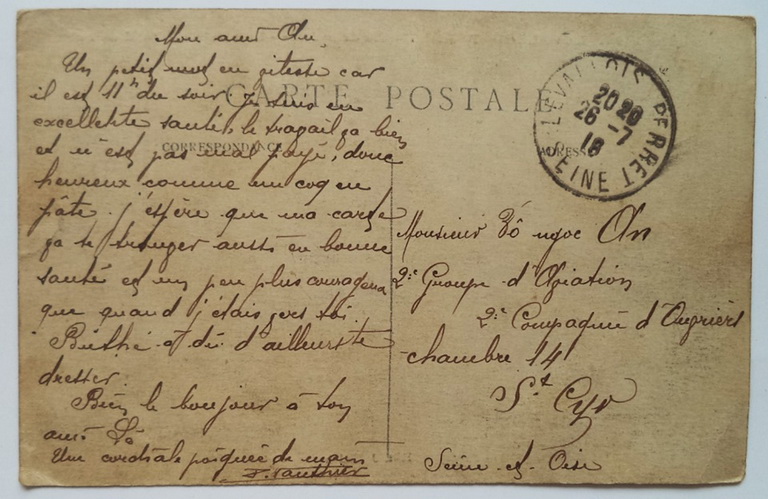 Mon ami An,
Un petit mot en vitesse car
il est 11h du soir, je suis en
excellente santé, le travail va bien
et n'est pas mal payé, donc
heureux comme un coq en
pâte. j'espère que ma carte
va te trouver aussi en bonne
santé et un peu plus courageux
que quand j'étais vers toi.
Berthé a dû d'ailleurs te
dresser.
Bien le bonjour à ton
ami Lê
Une cordiale poignée de main
CARTE POSTALE
CORRESPONDANCE
ADRESSE
LEVALLOIS PERRET
20 20
26 -7
18
SEINE
Monsieur Võ ngoc An
2e Groupe d'Aviation
2e Compagnie d'Ouvriers
chambre 14
St Cyr
Seine et Oise